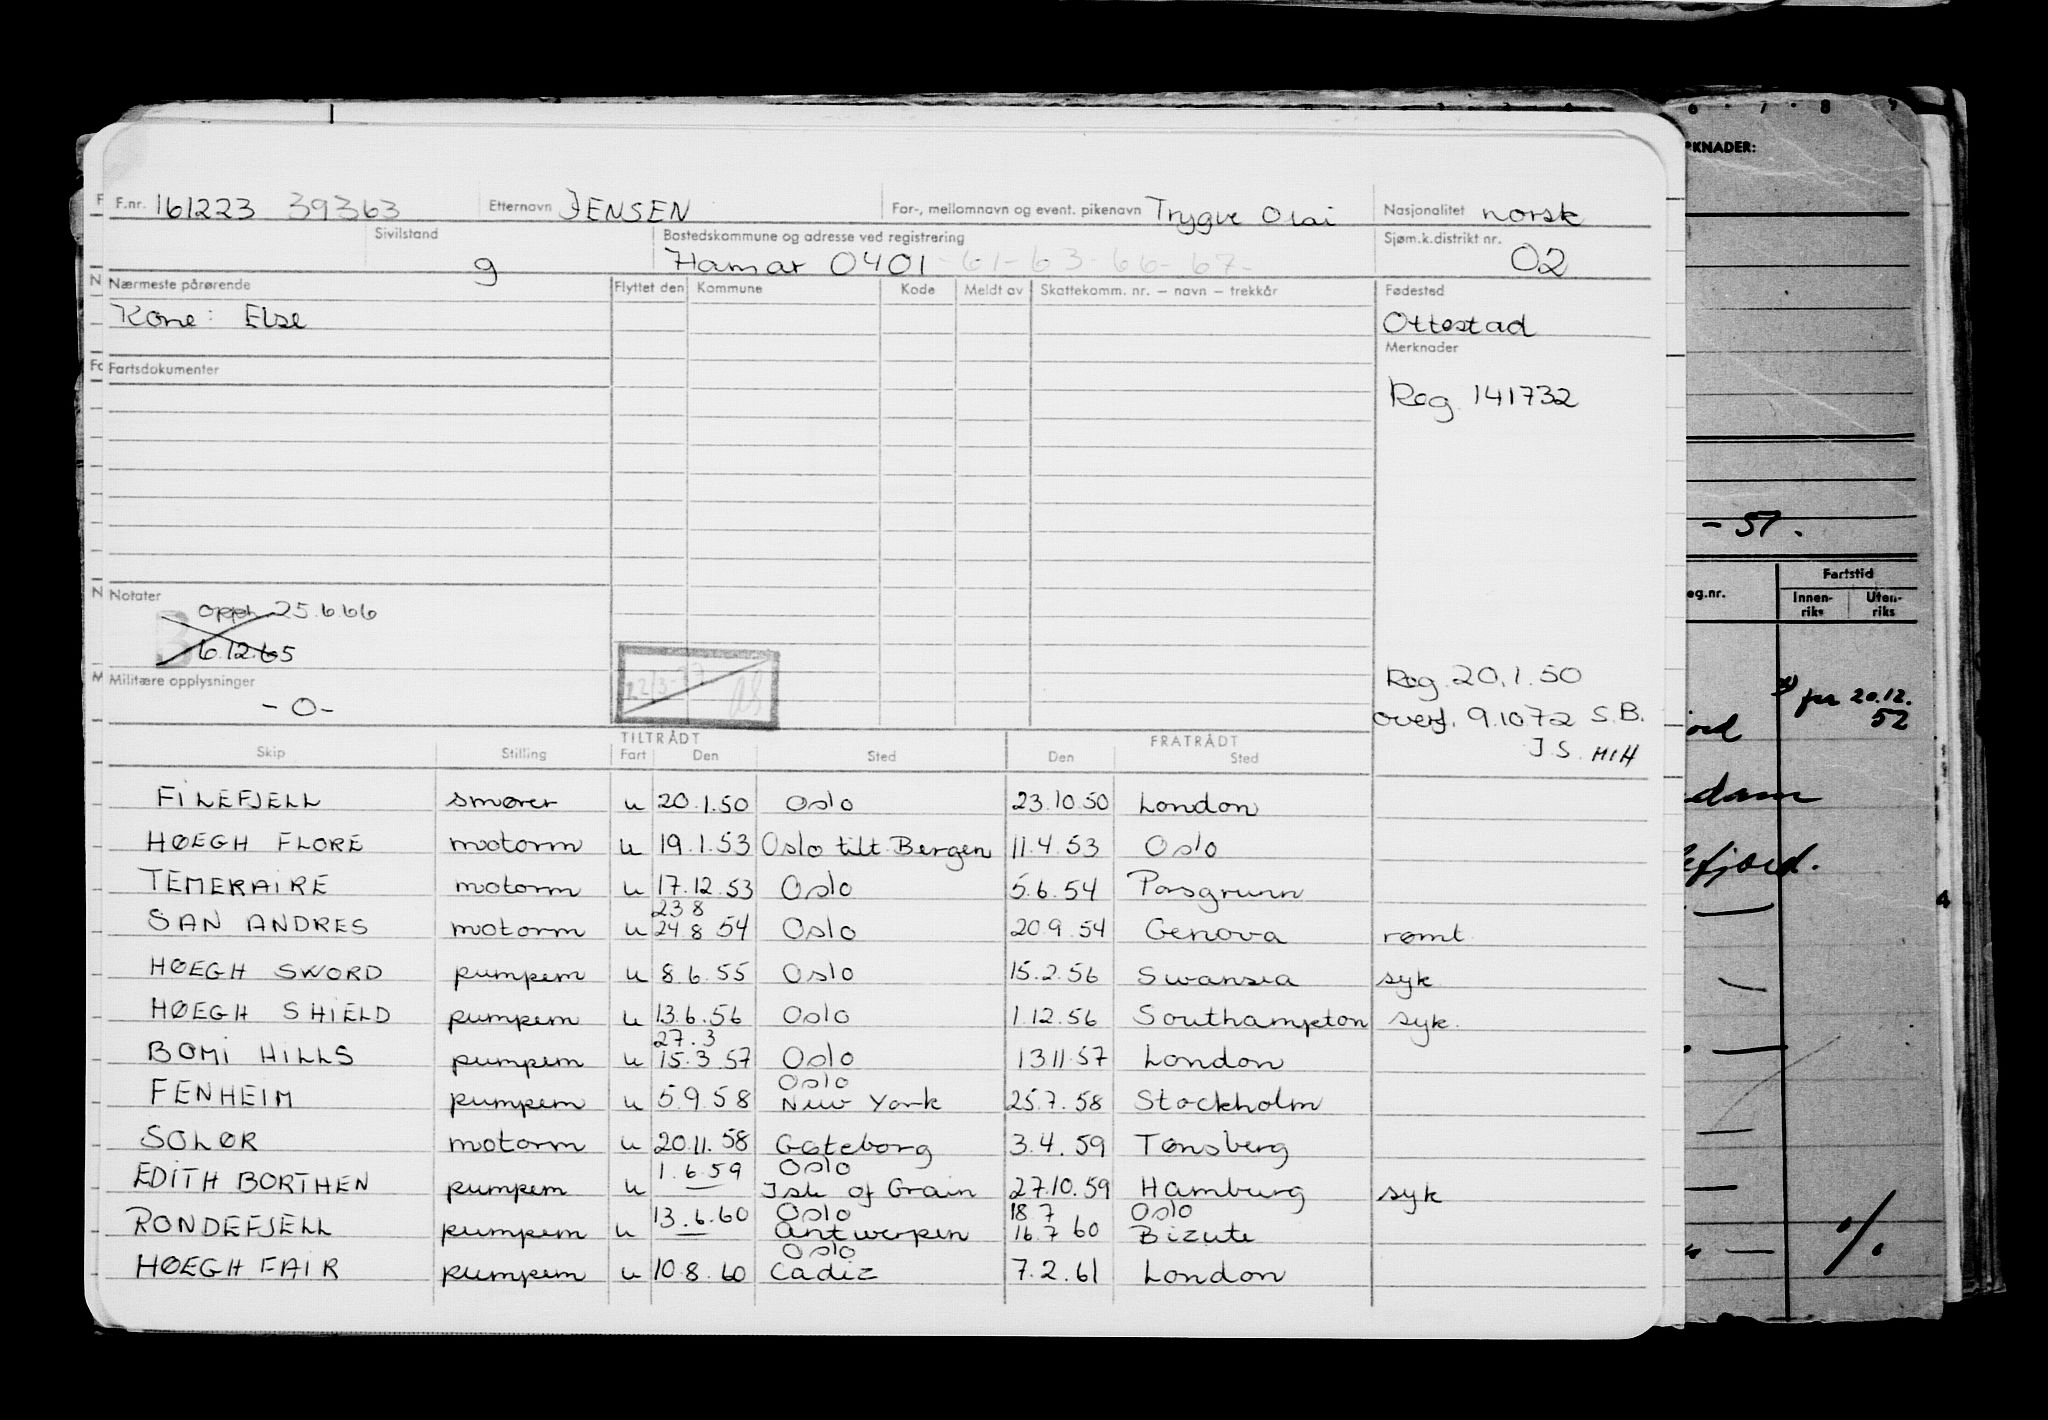 F.nr. 161223 39363 Etternavn JENSEN For-, mellomnavn og event. pikenavn Trygve Olai Nasjonalitet norsk
Sivilstand g Bostedskommune og adresse ved registrering Hamar 0401 -61-63-66-67- Sjøm.k.distrikt nr. 02
Nærmeste pårørende Flyttet den Kommune Kode Meldt av Skattekomm. nr. – navn – trekkår Fødested
Kone: Else Ottestad
Merknader
Fartsdokumenter
Reg. 141732
Notater
opph 25.6.66
6.12.65
Militære opplysninger
-0-
Reg. 20.1.50
overf. 9.1072 S.B.
J.S. MIH
TILTRÅDT FRATRÅDT
Skip Stilling Fart Den Sted Den Sted
FILEFJELL smører u 20.1.50 Oslo 23.10.50 London
HØEGH FLORE motorm u 19.1.53 Oslo tilt. Bergen 11.4.53 Oslo
TEMERAIRE motorm u 17.12.53 Oslo 5.6.54 Porsgrunn
23 8
SAN ANDRES motorm u 24.8 54 Oslo 20.9.54 Genova rømt.
HØEGH SWORD pumpem u 8.6.55 Oslo 15.2.56 Swansea syk
HØEGH SHIELD pumpem u 13.6.56 Oslo 1.12.56 Southampton syk.
27.3
BOMI HILLS pumpem u 15.3.57 Oslo 13 11.57 London
Oslo
FENHEIM pumpem u 5.9.58 New York 25.7.58 Stockholm
SOLØR motorm u 20.11.58 Gøteborg 3.4.59 Tønsberg
1.6.59 Oslo
EDITH BORTHEN pumpem u — Isle of Grain 27.10.59 Hamburg syk
13.6.60 Oslo 18 7 Oslo
RONDEFJELL pumpem u — Antwerpen 16.7 60 Bizute
Oslo
HØEGH FAIR pumpem u 10.8.60 Cadiz 7.2.61 London
6 · 7 · 8 9
RKNADER:
- 51.
Fartstid
eg.nr. Innen-riks Uten-riks
x) fra 20.12.
52
ord
dam
fjord.
%